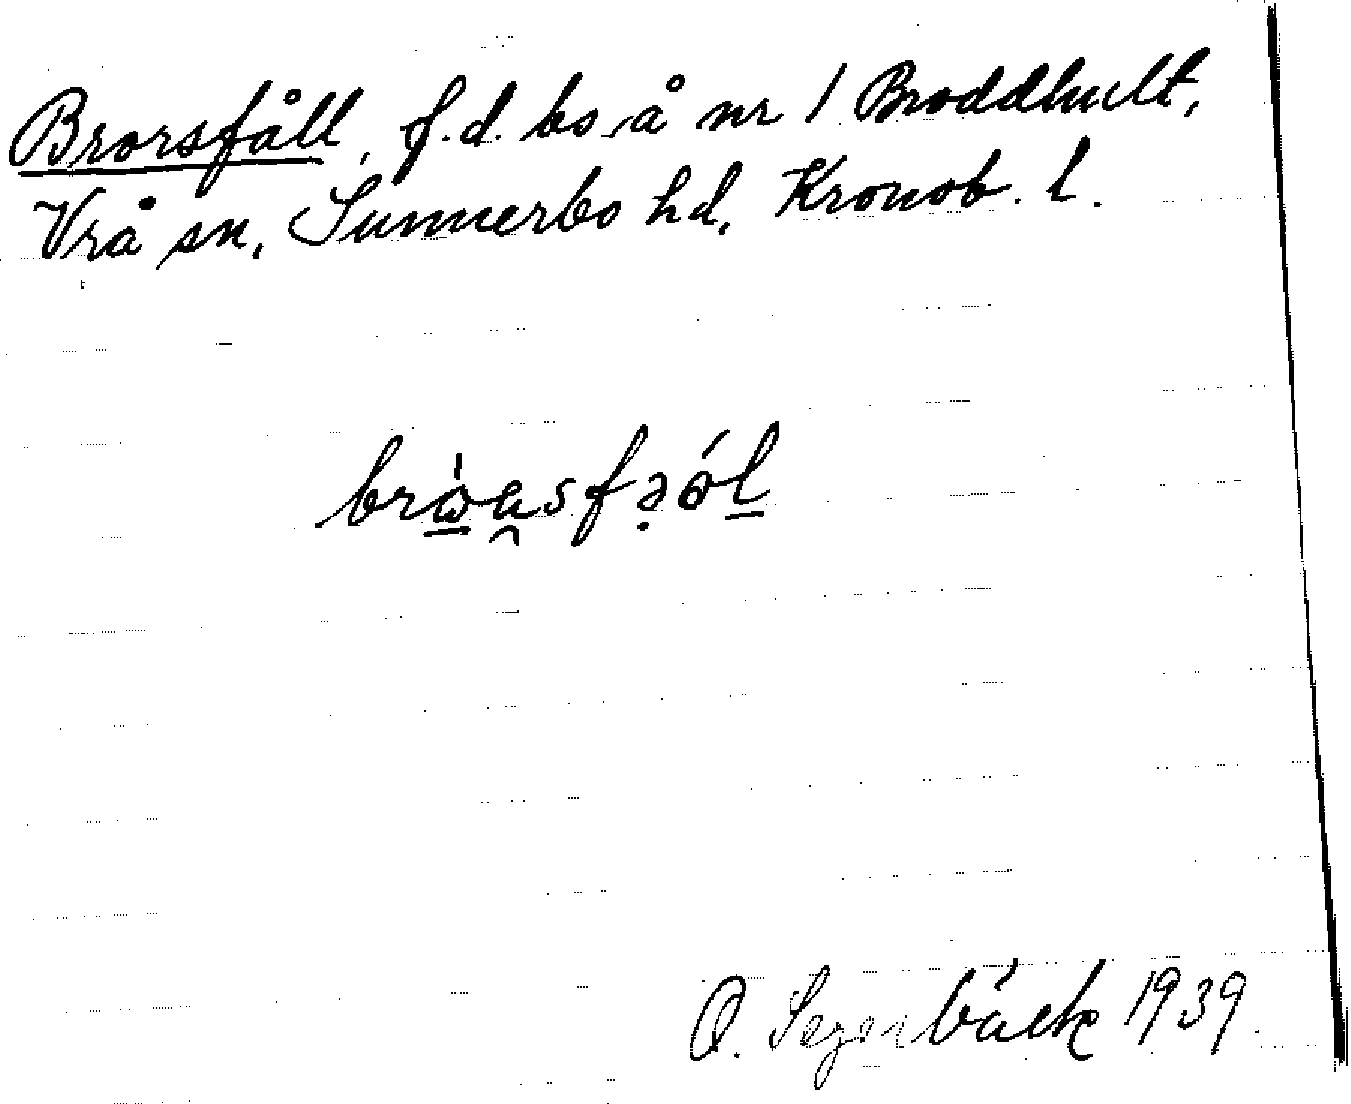 Brorsfåll, f.d. bs å nr 1 Broddhult,
Vrå sn, Sunnerbo hd, Kronob. l.
O. Segerbäck 1939.